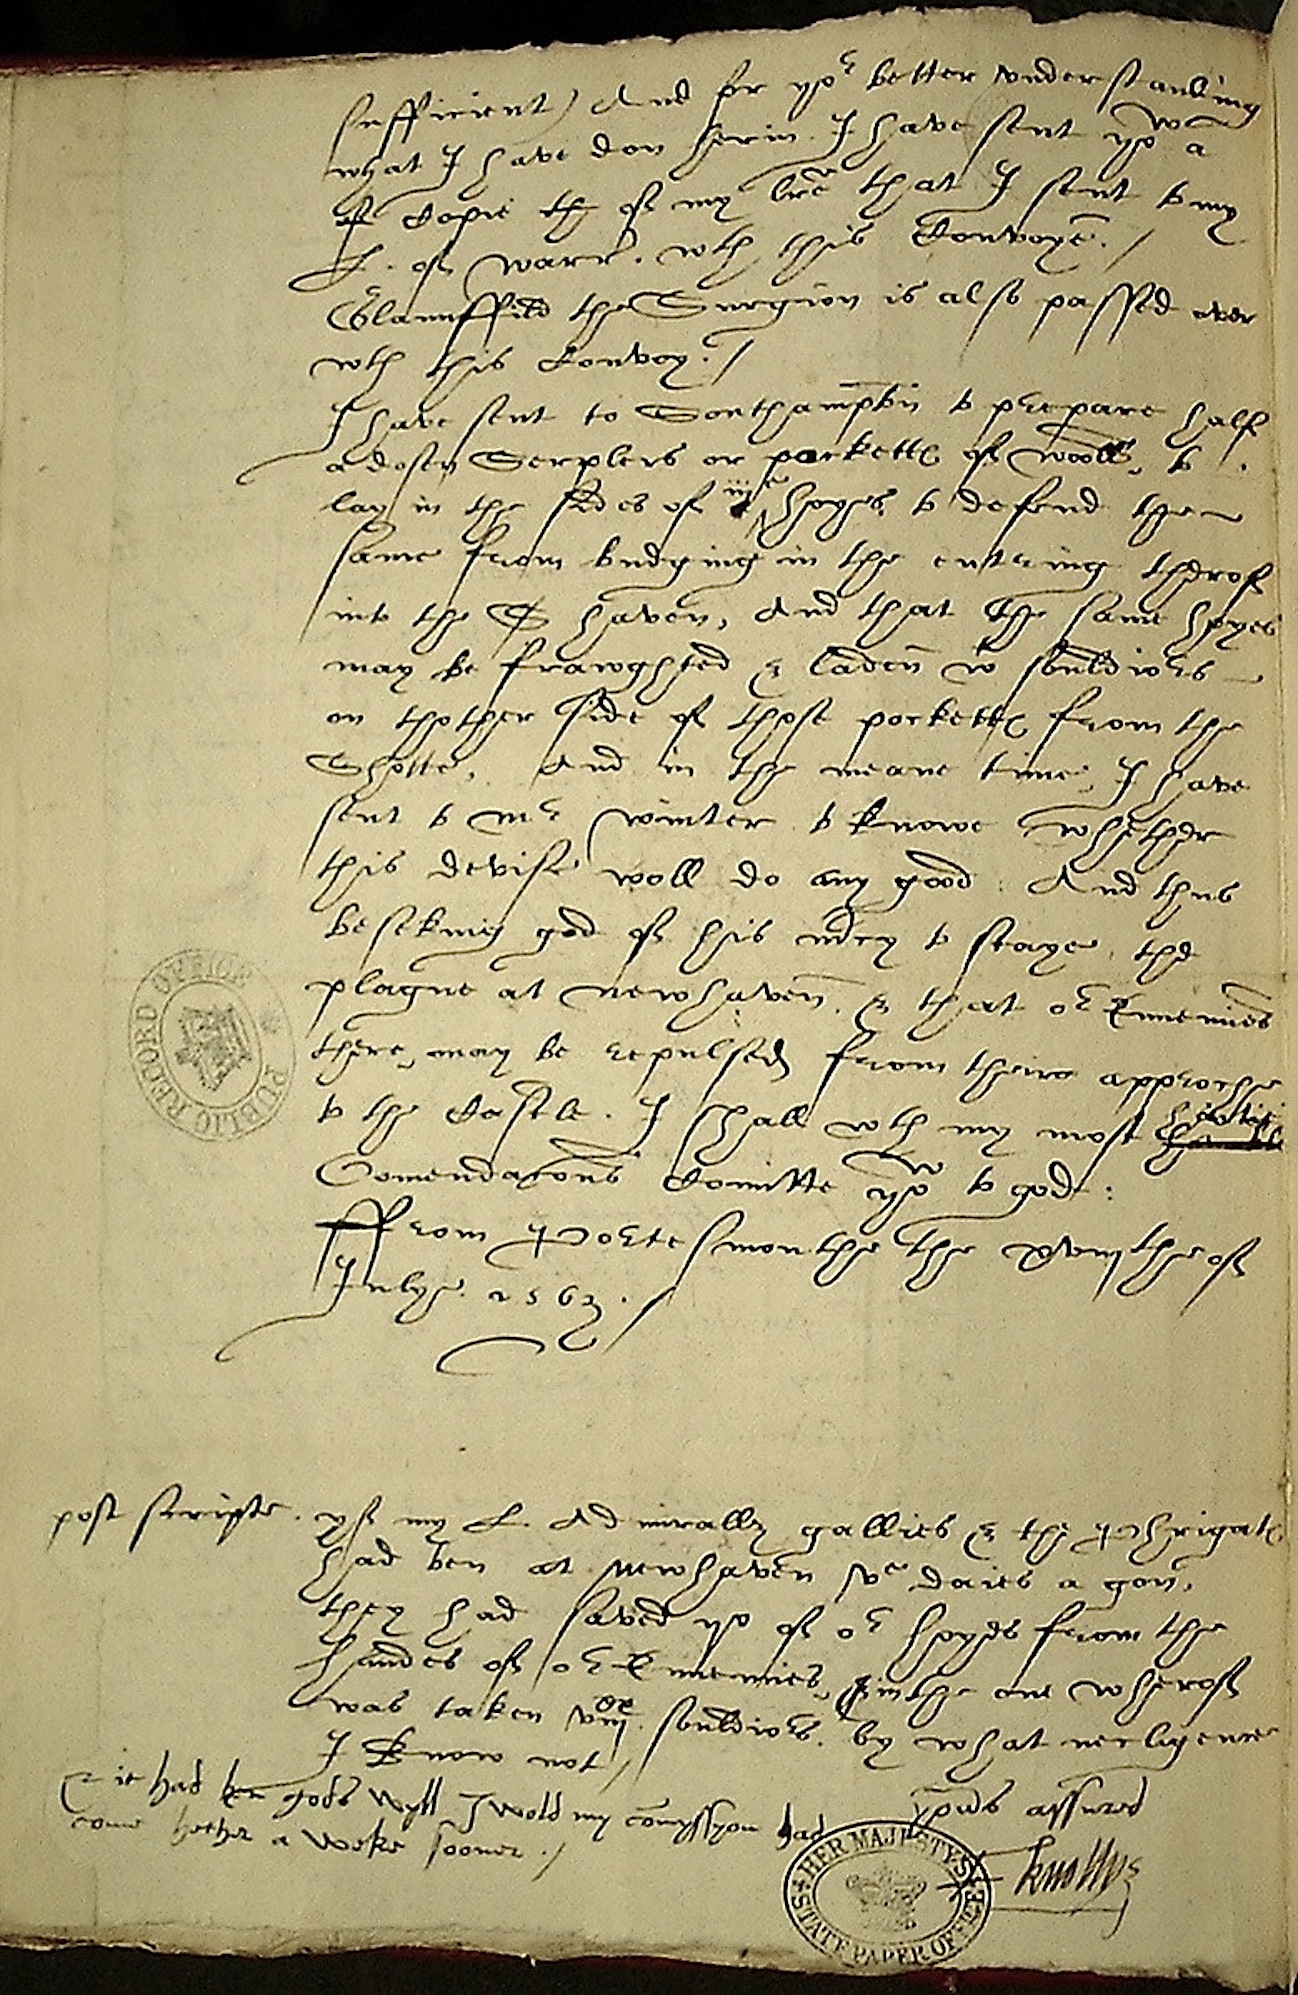 sufficient) And for yor better understanding
what I have don herin. I have sent yow a
Copie of my lre that I sent to my
L. of warr. wth this Convoye. /
the Surgion is also passed over
wth this Convoy. /
I have sent to Southampton to prepare half
a dosen Serplers or pockette of wooll to
lay in the sides of iiije hoyes, to defend the
same from budging in the entring therof
into the haven, And that the same hoyes
may be frawghted & laden wt souldiors
on thother side of those pockette from the
Shotte, And in the meane time I have
sent to mr winter to knowe whether
this devise woll do any good : And thus
beseking god of his mercy to staye the
plague at newhaven, & that or Ennemies
there may be repulsed from theire approche
to the Castle. I shall wth my most hartie
Comendacons Comitte yow to god :
ffrom Portesmouthe the xviijthe of
Julye. 1563. /
post scripte. yf my L. Admirally gallies & the Phrigate
had ben at Newhaven ve daies a gon,
they had saved ij of or hoyes from the
handes of or Ennemies, in the one wherof
was taken viijxx souldiors. by what necligence
I know not /
& it had ben gods wyll I wold my comyssyon had
come hether a weke sooner. /
yours assured
F knollys
PUBLIC RECORD OFFICE
HER MAJESTY'S STATE PAPER OFFICE